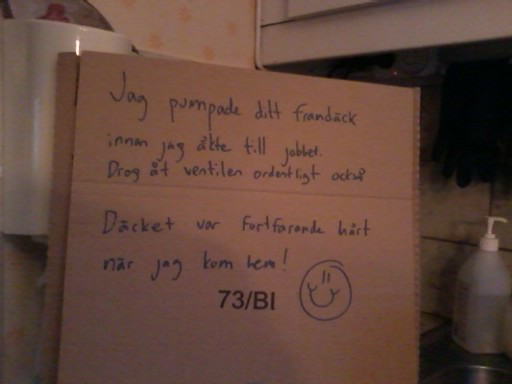 Jag pumpade ditt framdäck
innan jag åkte till jobbet.
Drog åt ventilen ordentligt också
Däcket var fortfarande hårt
när jag kom hem!
73/BI